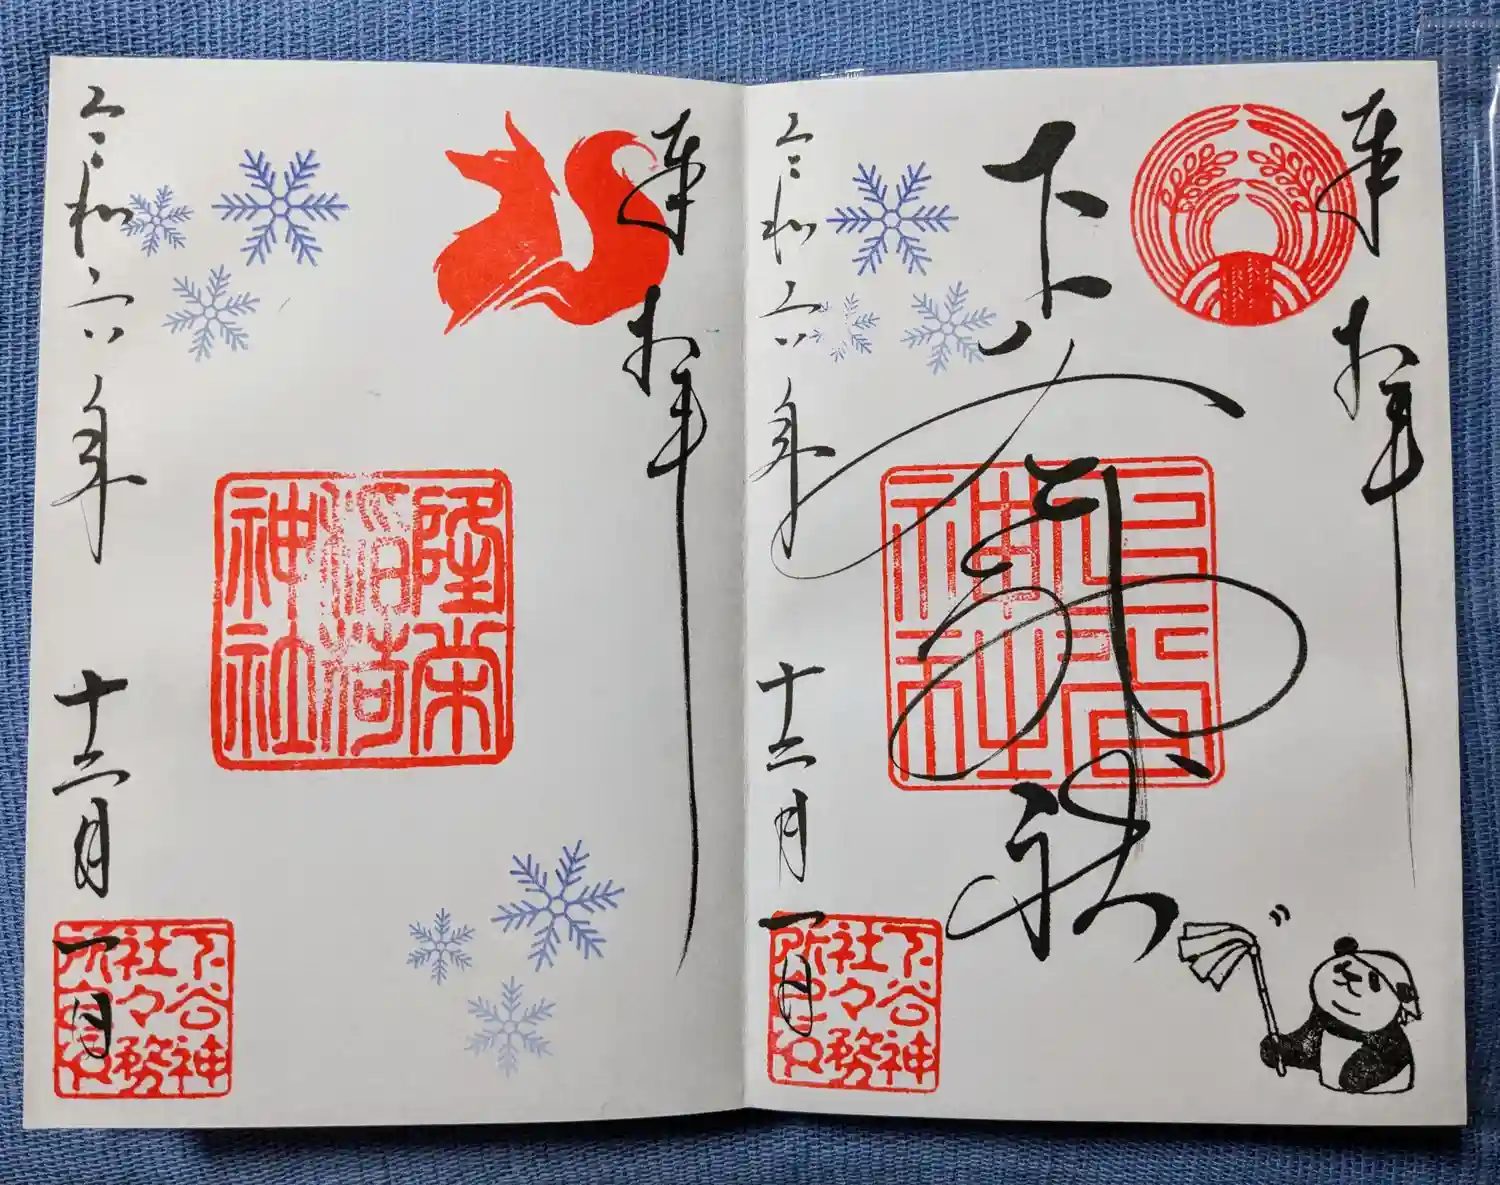 奉拝
下谷神社
下谷神社
令和六年十二月一日
下谷神
社々務
所之印
奉拝
隆栄
稲荷
神社
令和六年十二月一日
下谷神
社々務
所之印